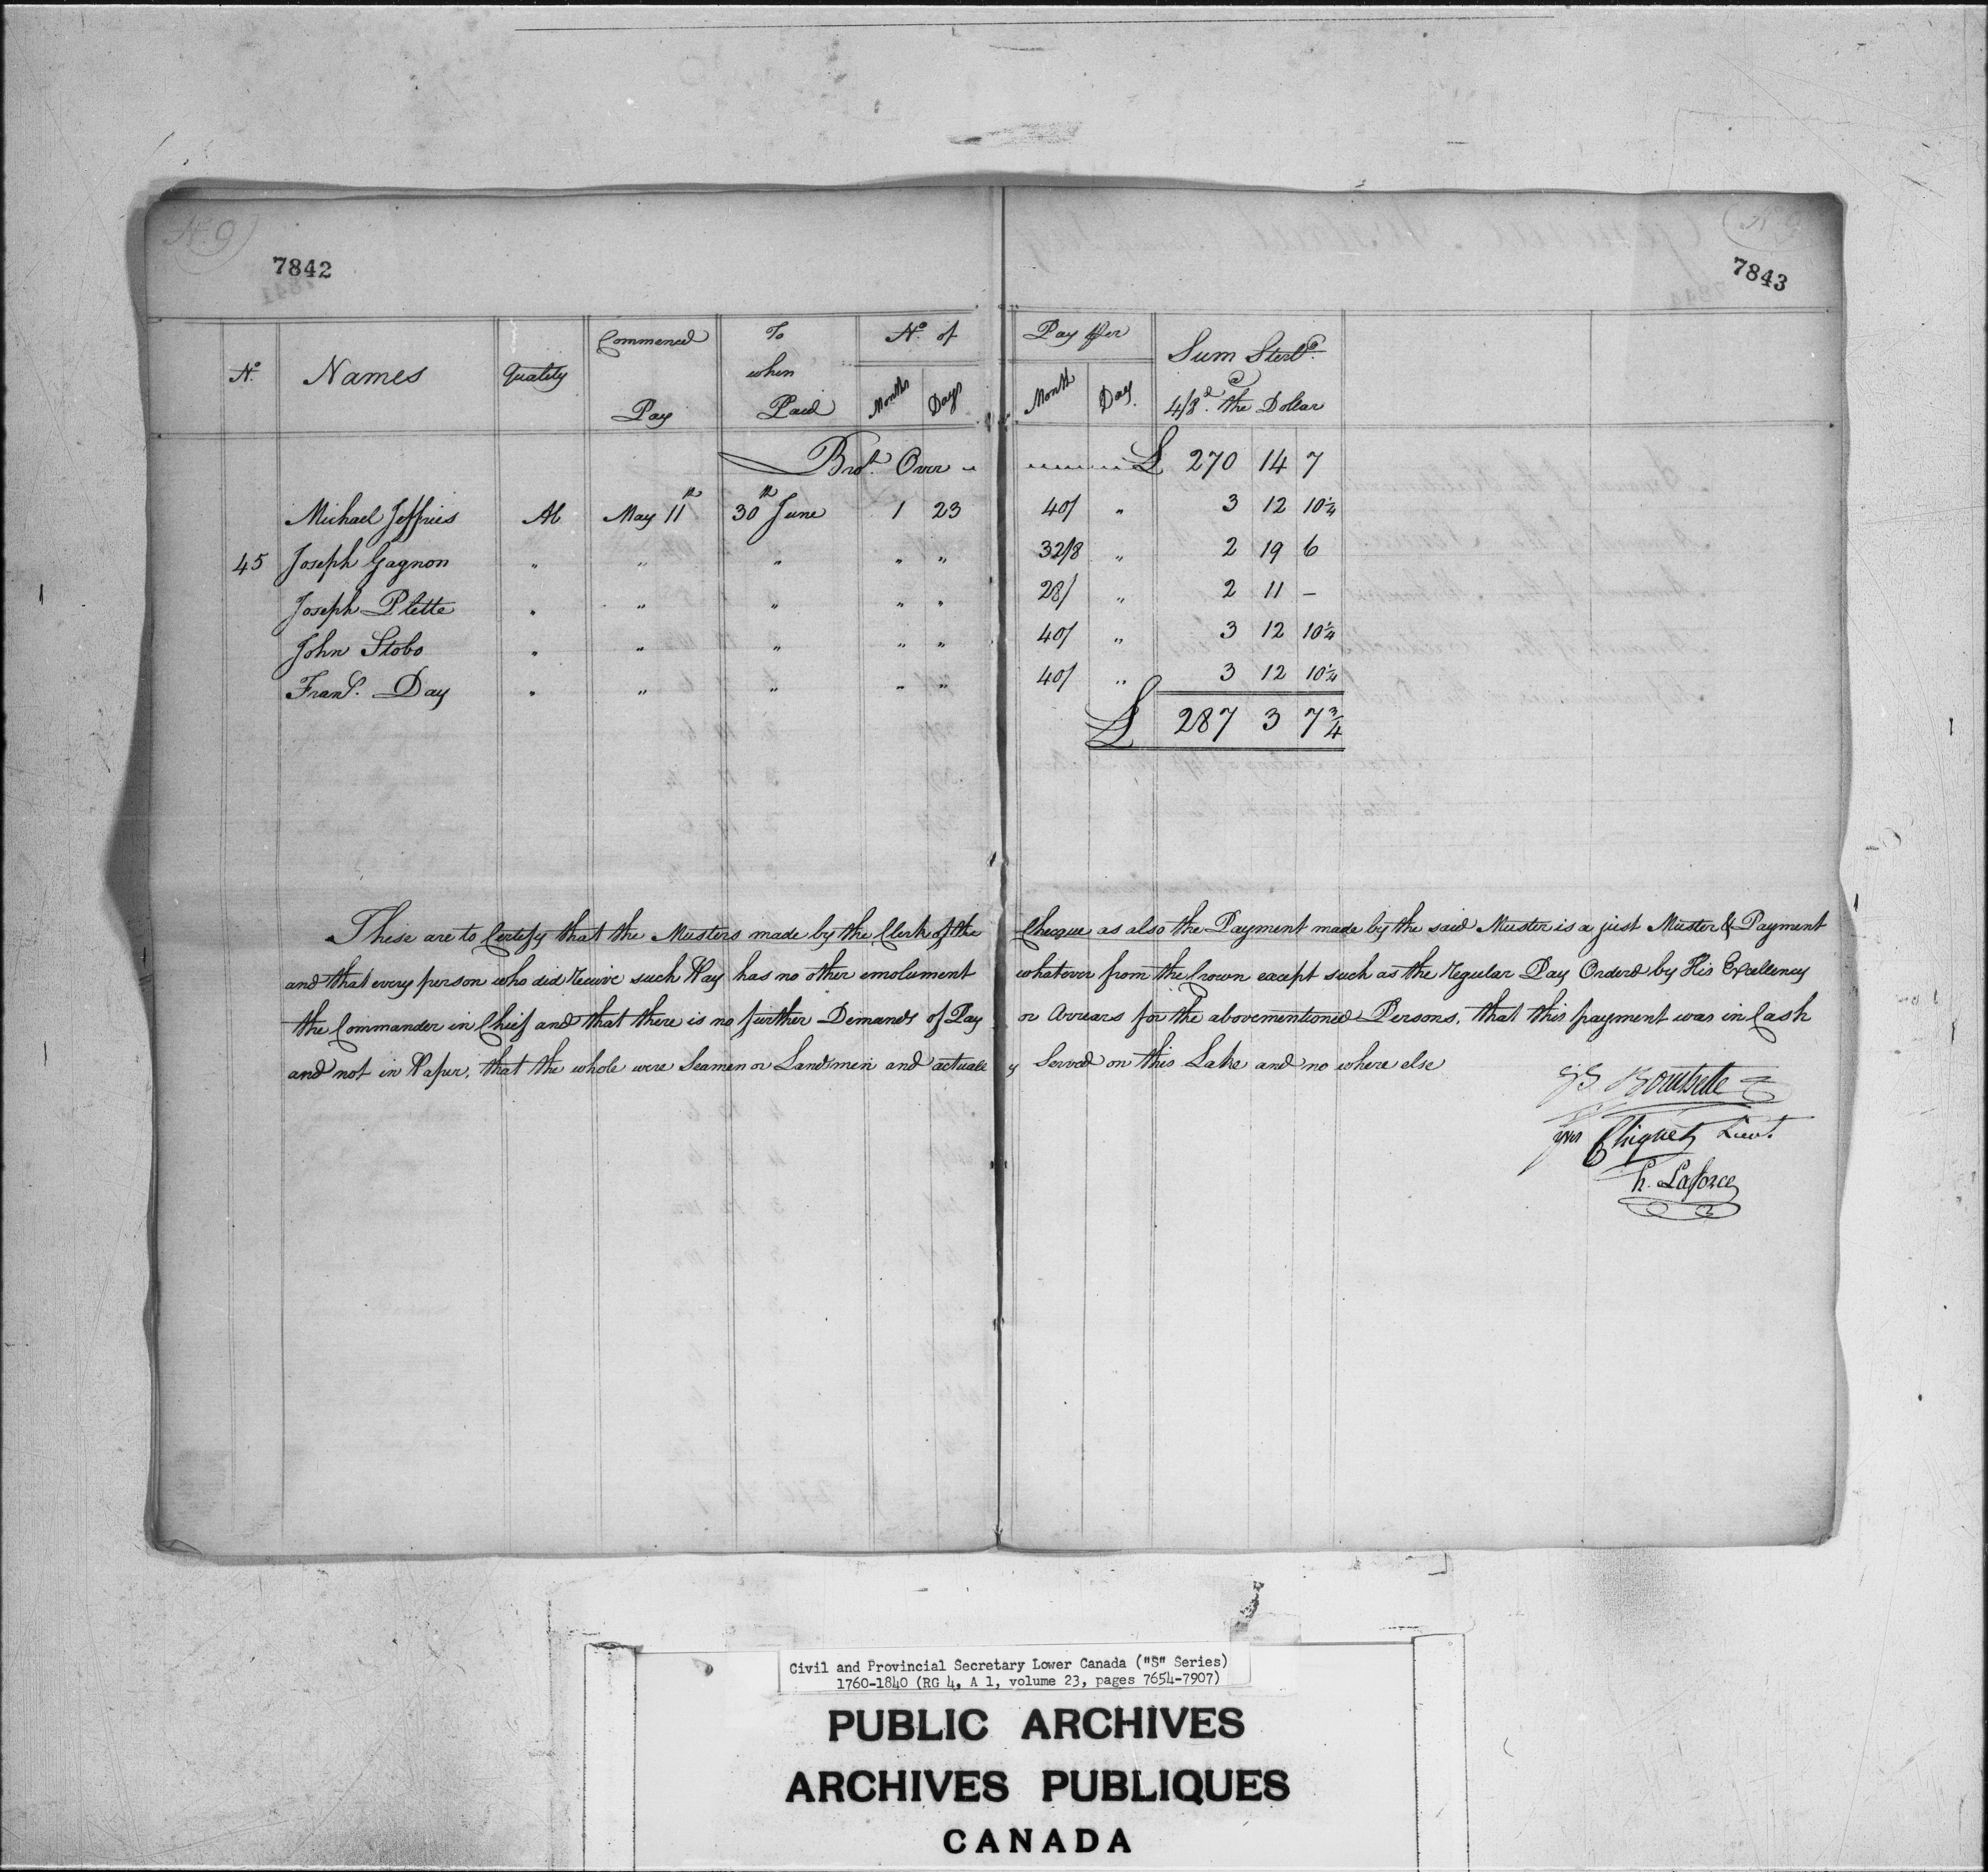 No 9
7842
No 9
7843
No. Names Quality Commenced Pay To when Paid No. of Months Days Pay Per Month Day. Sum Sterlg. @ 4/8d. the Dollar
Brot. Over " £ 270 14 7
Michael Jeffries Ab May 11th 30th June 1 23 40/ " 3 12 10¼
45 Joseph Gagnon " " " " " 32/8 " 2 19 6
Joseph Plette " " " " " 28/ " 2 11 –
John Stobo " " " " " 40/ " 3 12 10¼
Frans. Day " " " " " 40/ " 3 12 10¼
£ 287 3 7¾
These are to Certify that the Musters made by the Clerk of the Checque as also the Payment made by the said Muster is a just Muster & Payment
and that every person who did receive such Pay has no other emolument whatever from the Crown except such as the regular Pay Orderd by His Excellency
the Commander in Chief and that there is no further Demands of Pay or Arrears for the abovementioned Persons, that this payment was in Cash
and not in Paper, that the whole were Seamen or Landsmen and actually Served on this Lake and no where else
Bouchette
Chiquet Lieut.
h. Laforce
Civil and Provincial Secretary Lower Canada ("S" Series)
1760-1840 (RG 4, A 1, volume 23, pages 7654-7907)
PUBLIC ARCHIVES
ARCHIVES PUBLIQUES
CANADA